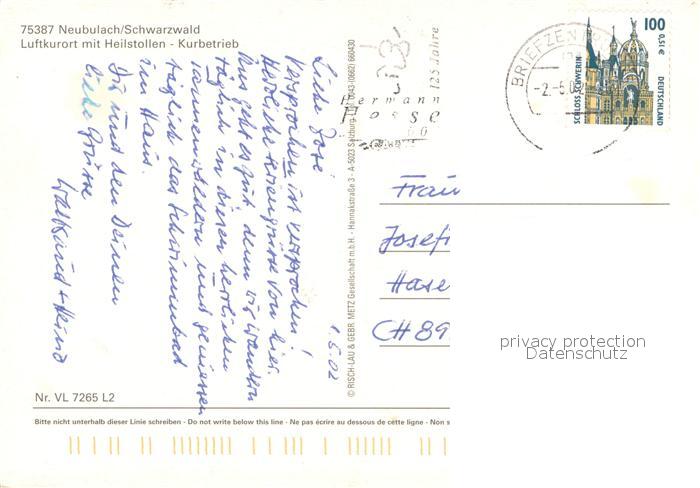 75387 Neubulach/Schwarzwald
Luftkurort mit Heilstollen - Kurbetrieb
125 Jahre
Hermann
Hesse
BRIEFZEN
-2.-5.02
100
0,51 €
SCHLOSS SCHWERIN
DEUTSCHLAND
1.5.02
Liebe Josi
Versprochen ist versprochen!
Herzliche Feriengrüsse von hier.
Uns geht es gut, denn wir wandern
täglich in diesen herrlichen
Tannenwäldern und geniessen
täglich das Schwimmbad
im Haus.
Dir und den Deinen
liebe Grüsse
Waltraud + Heinz
© RISCH-LAU & GEBR. METZ Gesellschaft m.b.H. - Hannakstraße 3 - A-5023 Salzburg, Tel. 0043-(0)662) 660430
Frau
Josefi
Hase
CH 89
privacy protection
Datenschutz
Nr. VL 7265 L2
Bitte nicht unterhalb dieser Linie schreiben - Do not write below this line - Ne pas écrire au dessous de cette ligne - Non s